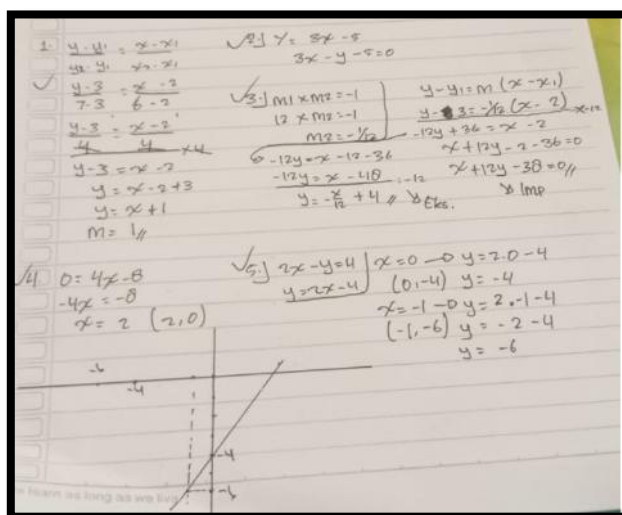 1. y-y1/y2-y1 = x-x1/x2-x1
y-3/7-3 = x-2/6-2
y-3/4 = x-2/4 ×4
y-3 = x-2
y = x-2+3
y = x+1
m = 1 //
2.) Y = 3x-5
3x-y-5=0
3.) m1 x m2 = -1
12 x m2 = -1
m2 = -1/12
y-y1 = m (x-x1)
y-3 = -1/12 (x-2) x-12
-12y+36 = x-2
x+12y-2-36=0
x+12y-38=0 //
Imp
-12y = x-12-36
-12y = x-48 :-12
y = -x/12 + 4 // Eks.
4. 0 = 4x-8
-4x = -8
x = 2 (2,0)
5.) 2x-y=4
y=2x-4
x=0 → y=2.0-4
(0,-4) y=-4
x=-1 → y=2.-1-4
(-1,-6) y = -2-4
y = -6
-6
-4
-4
-6
learn as long as we live